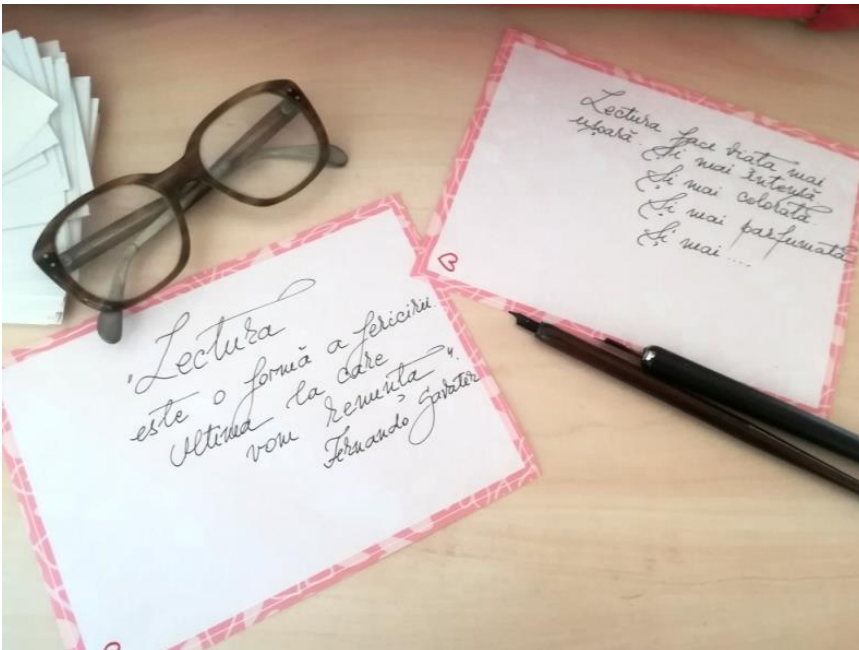 "Lectura
este o formă a fericirii.
Ultima la care
vom renunța".
Fernando Savater
Lectura face viața mai
ușoară. Și mai intensă.
Și mai colorată.
Și mai parfumată
Și mai ....